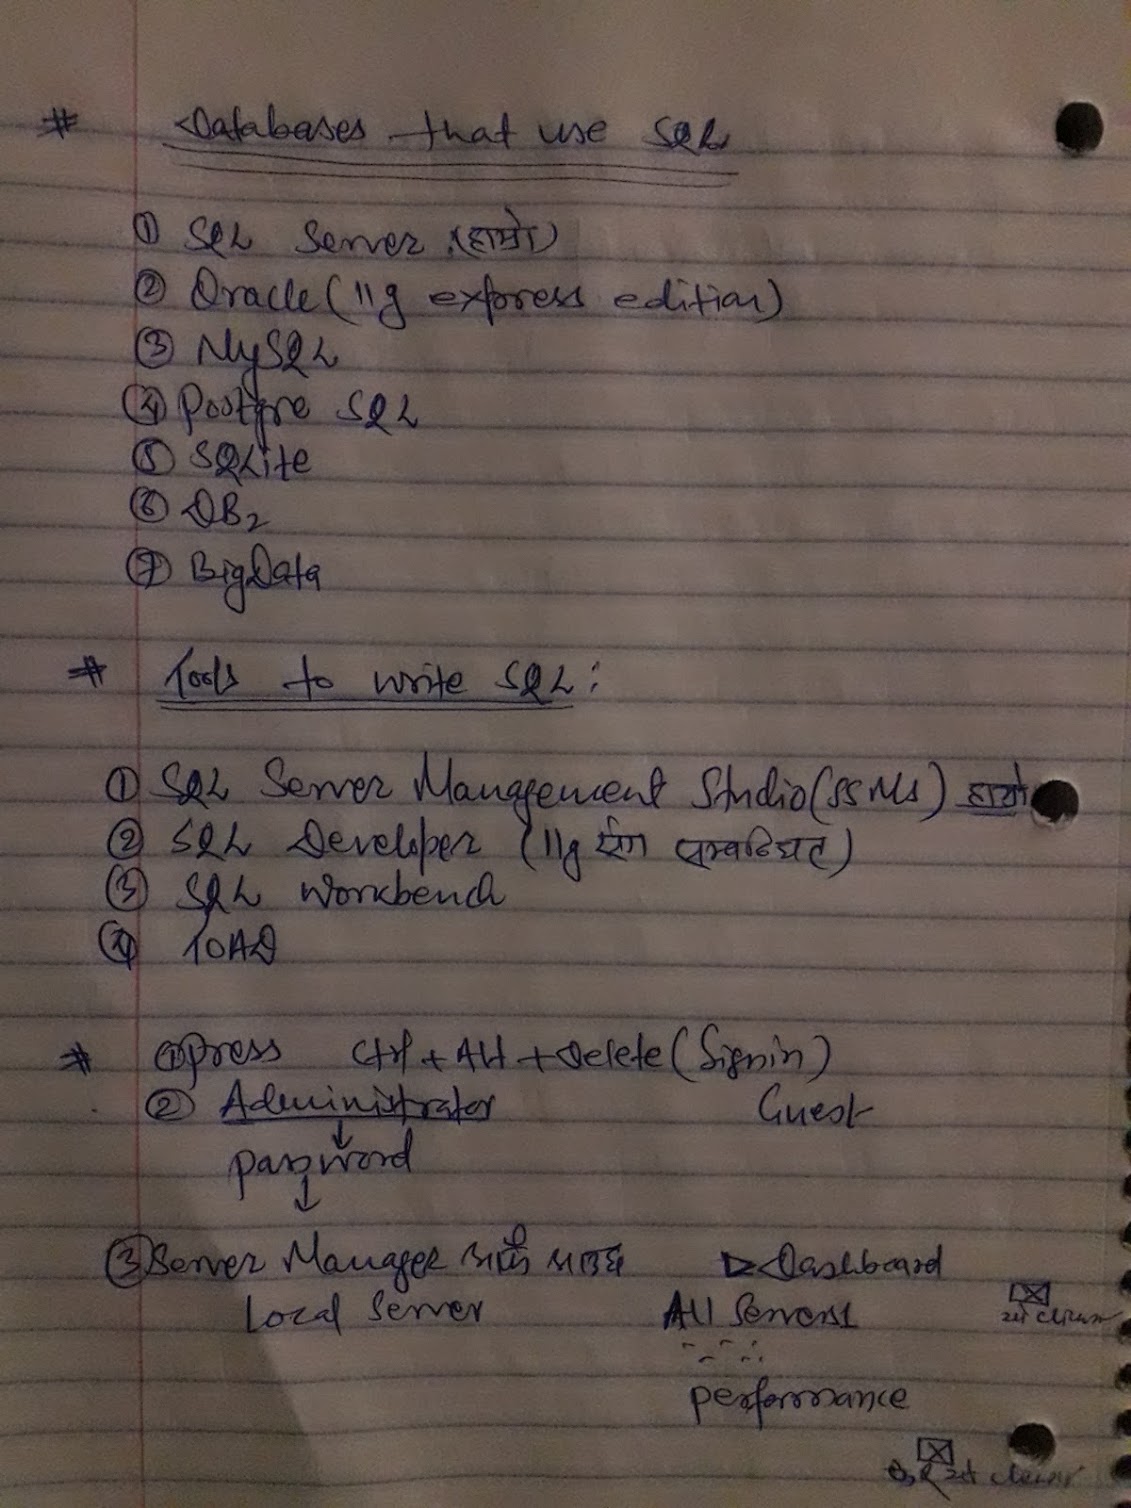 # Databases that use SQL
① SQL Server (हाम्रो)
② Oracle (11g express edition)
③ MySQL
④ Postgre SQL
⑤ SQLite
⑥ DB2
⑦ BigData
# Tools to write SQL:
① SQL Server Management Studio (SSMS) हाम्रो
② SQL Developer (11g सँग सम्बन्धित)
③ SQL Workbench
④ TOAD
# ① press Ctrl + Alt + Delete (Signin)
② Administrator Guest
↓
password
↓
③ Server Manager आफै आउछ ▷ Dashboard
Local Server All Servers
performance